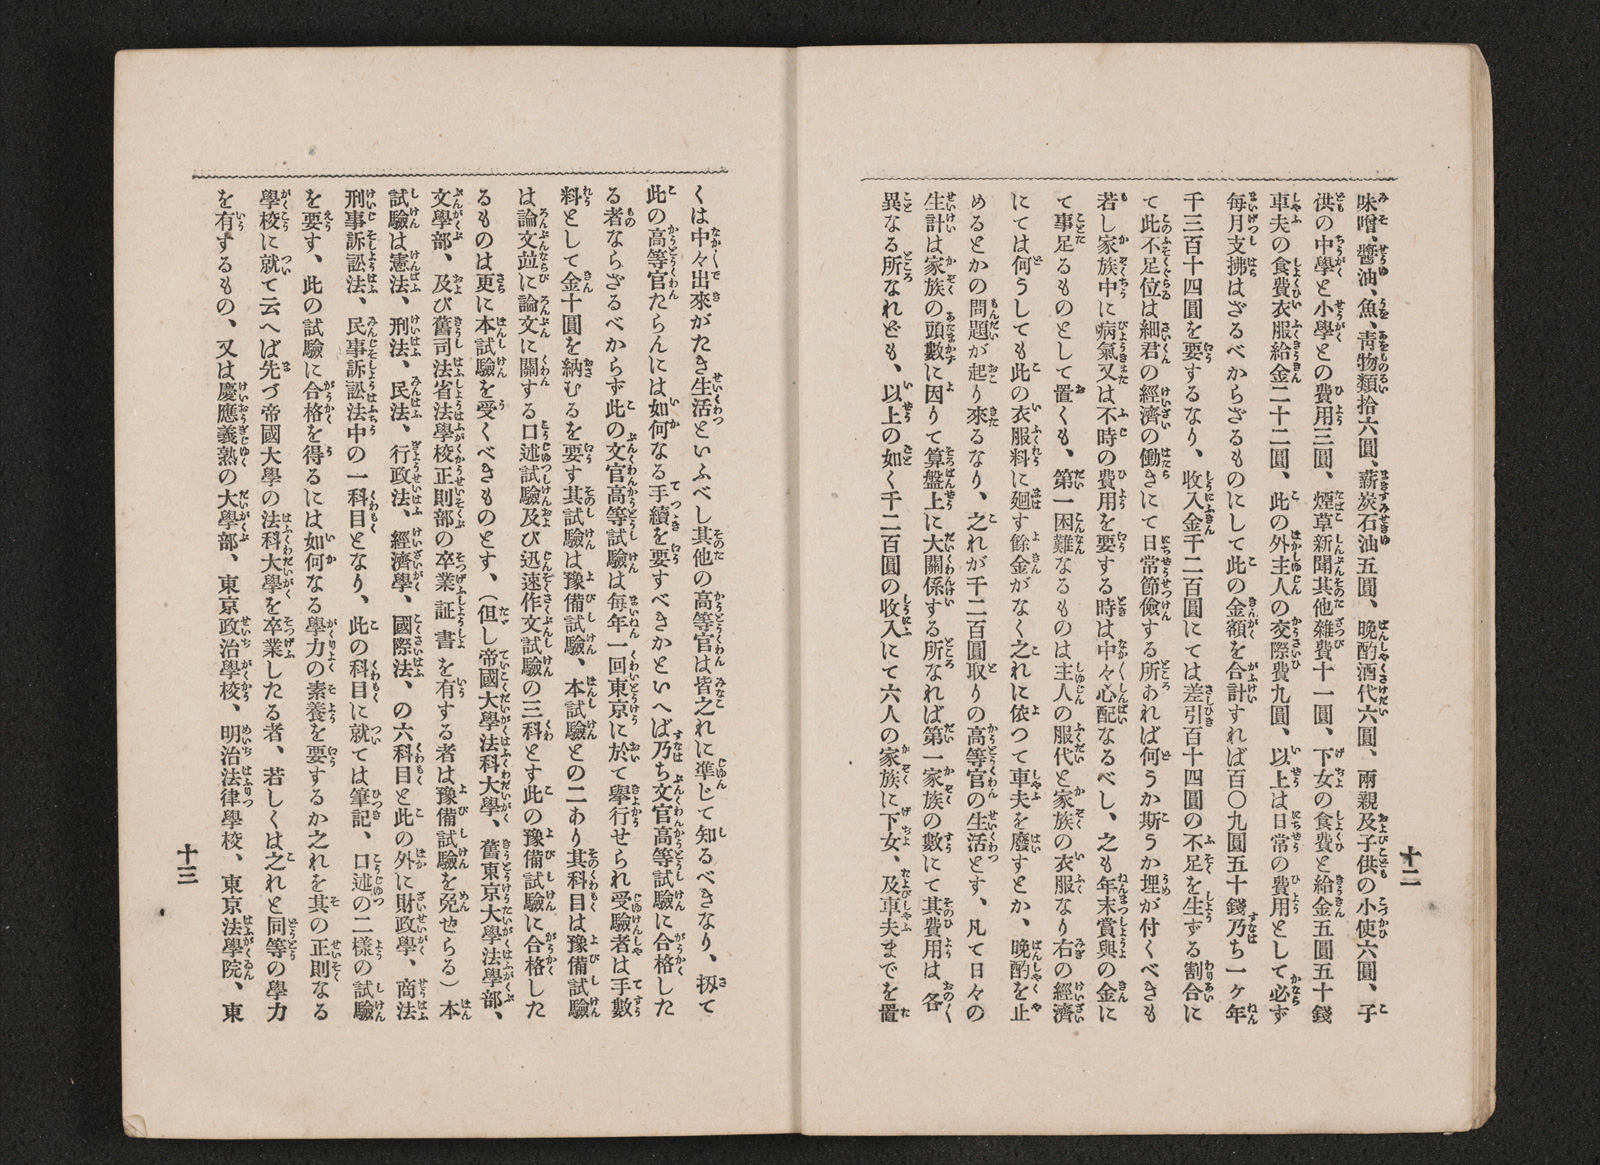 十二
味噌、醬油、魚、靑物類拾六圓、薪炭石油五圓、晩酌酒代六圓、兩親及子供の小使六圓、子
供の中學と小學との費用三圓、煙草新聞其他雜費十一圓、下女の食費と給金五圓五十錢
車夫の食費衣服給金二十二圓、此の外主人の交際費九圓、以上は日常の費用として必ず
每月支拂はざるべからざるものにして此の金額を合計すれば百〇九圓五十錢乃ち一ヶ年
千三百十四圓を要するなり、收入金千二百圓にては差引百十四圓の不足を生ずる割合に
て此不足位は細君の經濟の働きにて日常節儉する所あれば何うか斯うか埋が付くべきも
若し家族中に病氣又は不時の費用を要する時は中々心配なるべし、之も年末賞與の金に
て事足るものとして置くも、第一困難なるものは主人の服代と家族の衣服なり右の經濟
にては何うしても此の衣服料に廻す餘金がなく之れに依つて車夫を廢すとか、晩酌を止
めるとかの問題が起り來るなり、之れが千二百圓取りの高等官の生活とす、凡て日々の
生計は家族の頭數に因りて算盤上に大關係する所なれば第一家族の數にて其費用は、各
異なる所なれども、以上の如く千二百圓の收入にて六人の家族に下女、及車夫までを置
くは中々出來がたき生活といふべし其他の高等官は皆之れに準じて知るべきなり、扨て
此の高等官たらんには如何なる手續を要すべきかといへば乃ち文官高等試驗に合格した
る者ならざるべからず此の文官高等試驗は每年一回東京に於て擧行せられ受驗者は手數
料として金十圓を納むるを要す其試驗は豫備試驗、本試驗との二あり其科目は豫備試驗
は論文竝に論文に關する口述試驗及び迅速作文試驗の三科とす此の豫備試驗に合格した
るものは更に本試驗を受くべきものとす、(但し帝國大學法科大學、舊東京大學法學部、
文學部、及び舊司法省法學校正則部の卒業証書を有する者は豫備試驗を免せらる)本
試驗は憲法、刑法、民法、行政法、經濟學、國際法、の六科目と此の外に財政學、商法
刑事訴訟法、民事訴訟法中の一科目となり、此の科目に就ては筆記、口述の二樣の試驗
を要す、此の試驗に合格を得るには如何なる學力の素養を要するか之れを其の正則なる
學校に就て云へば先づ帝國大學の法科大學を卒業したる者、若しくは之れと同等の學力
を有するもの、又は慶應義塾の大學部、東京政治學校、明治法律學校、東京法學院、東
十三